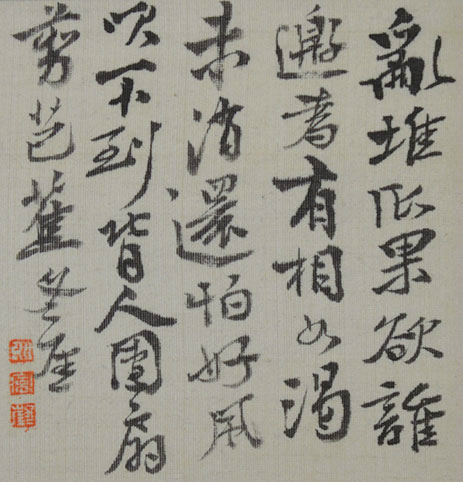 亂堆瓜果欲誰
邀有相如渴
未消還怕好風
吹不到背人團扇
剪芭蕉